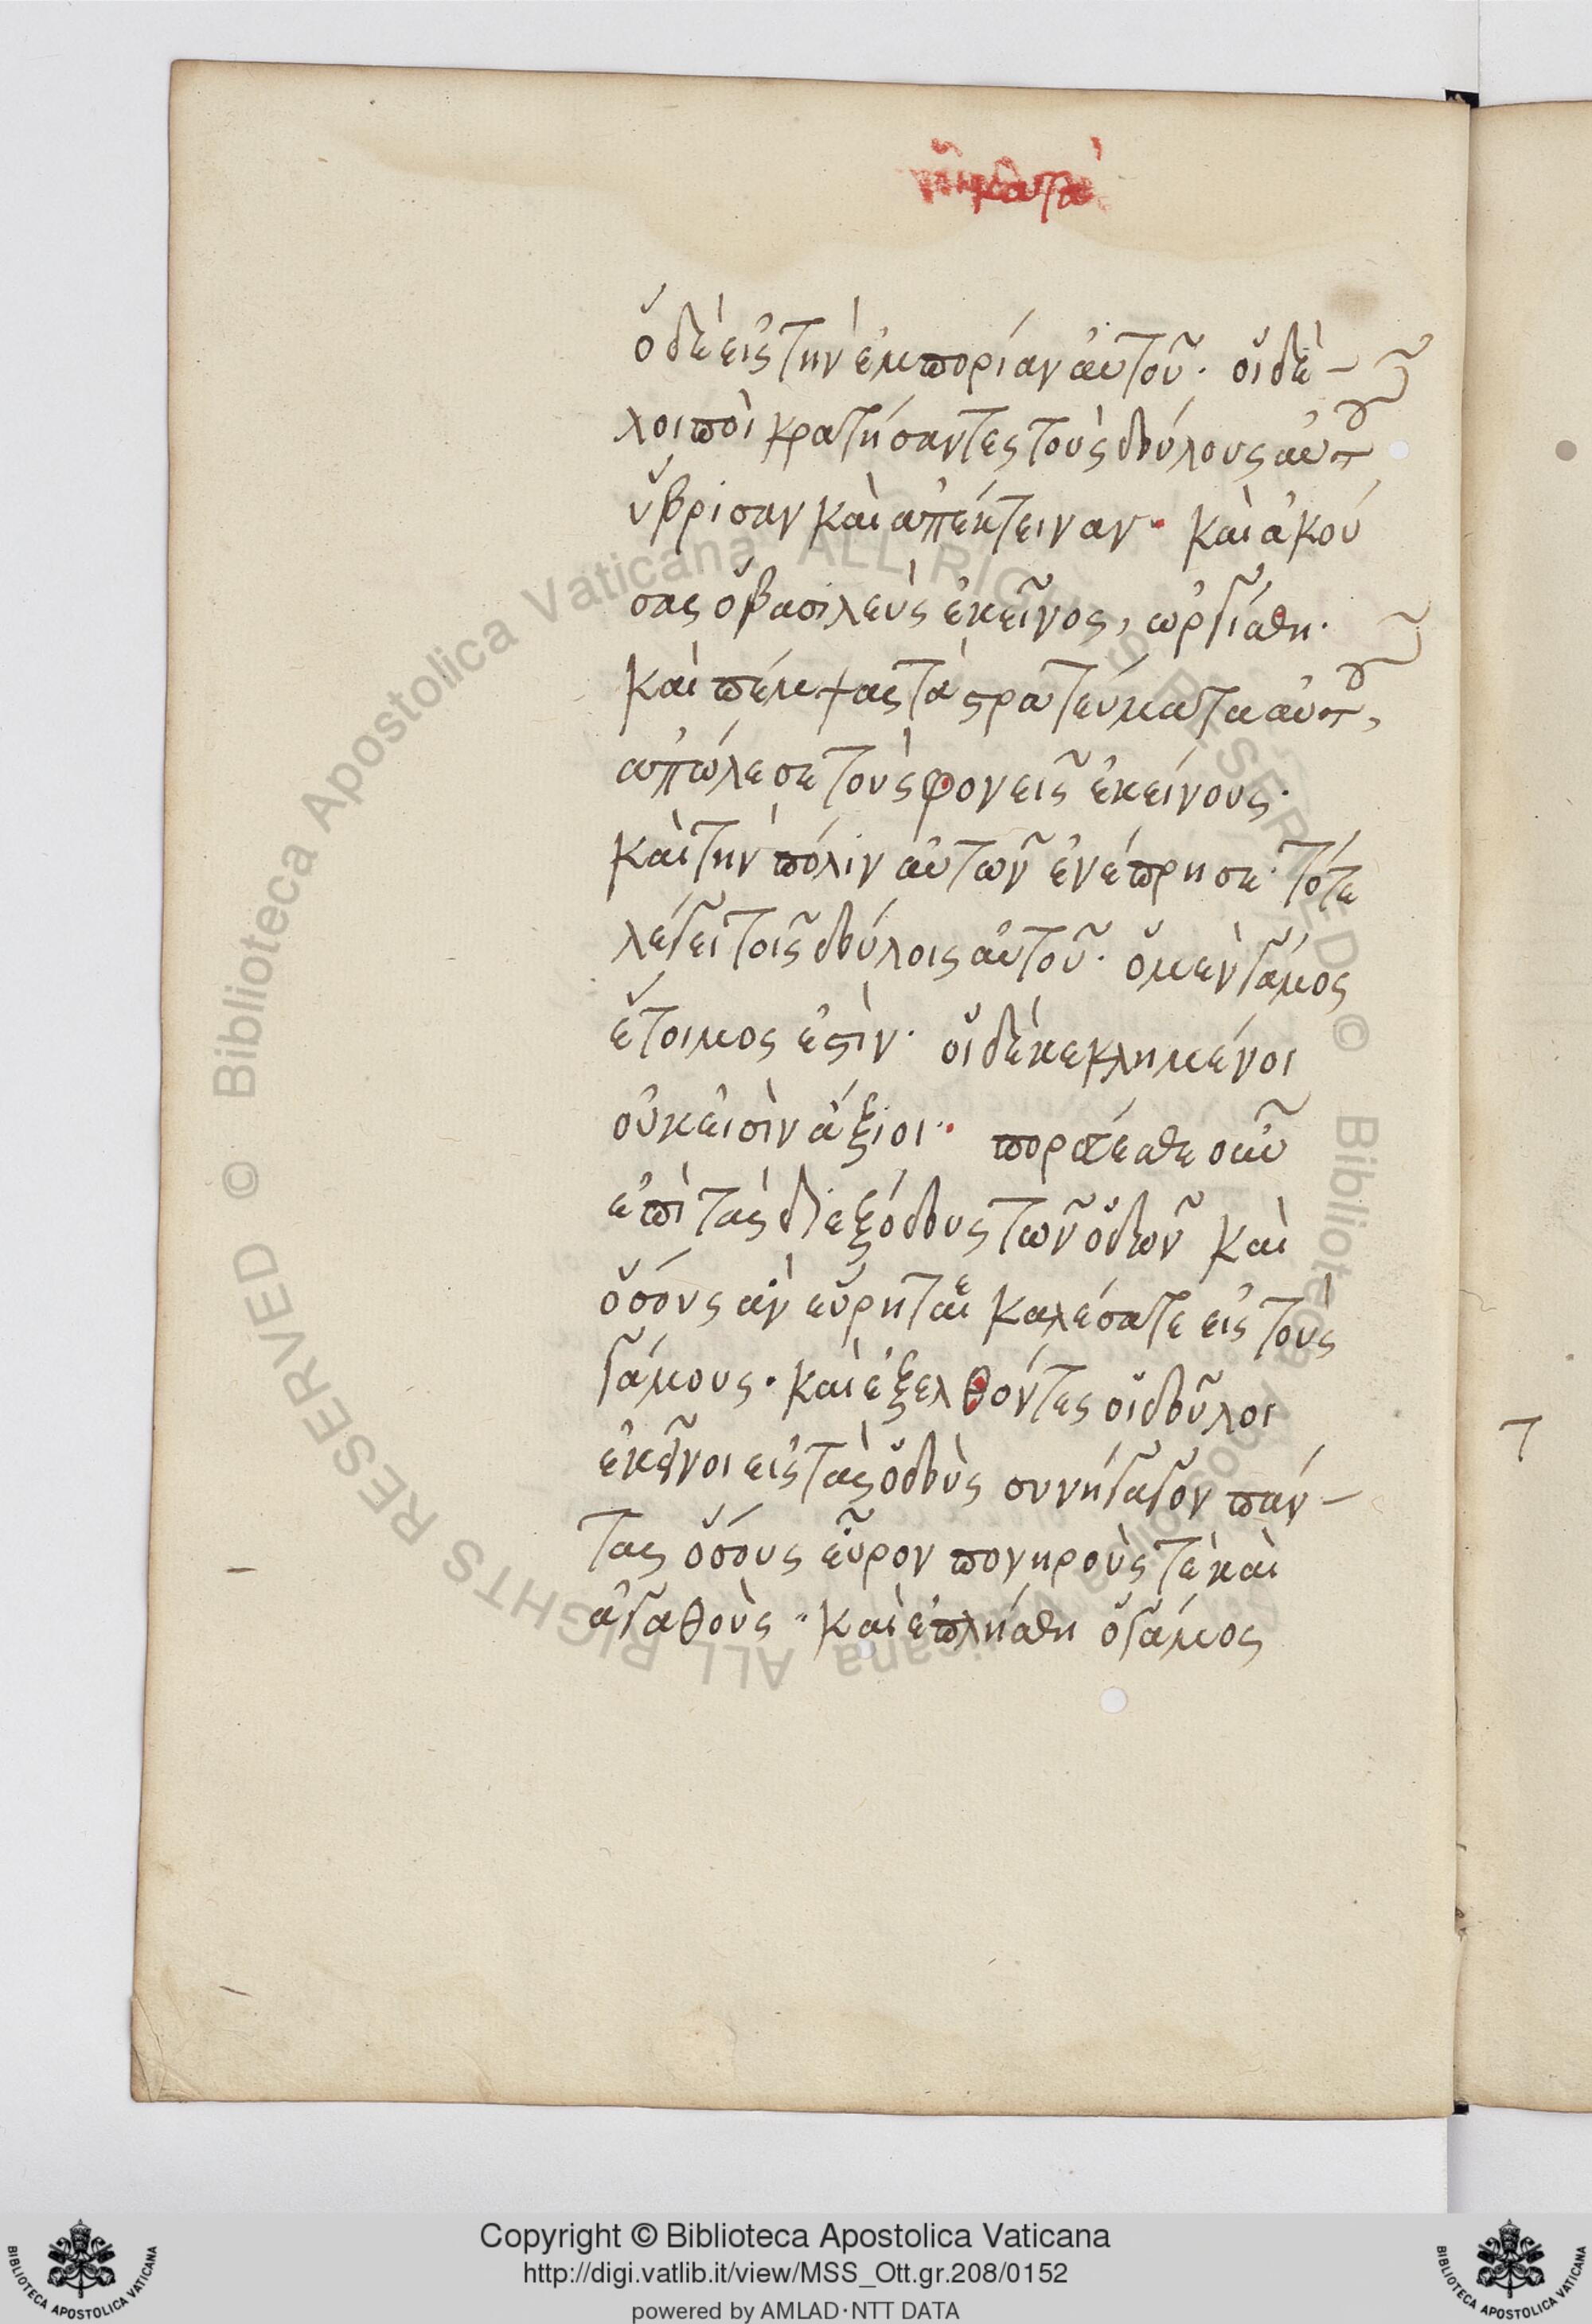 ὁ δὲ εἰς τὴν ἐμπορίαν αὐτοῦ· οἱ δὲ
λοιποὶ κρατήσαντες τοὺς δούλους αὐτοῦ
ὕβρισαν καὶ ἀπέκτειναν· καὶ ἀκού
σας ὁ βασιλεὺς ἐκεῖνος, ὠργίσθη·
καὶ πέμψας τὰ στρατεύματα αὐτοῦ,
ἀπώλεσε τοὺς φονεῖς ἐκείνους·
καὶ τὴν πόλιν αὐτῶν ἐνέπρησε· τότε
λέγει τοῖς δούλοις αὐτοῦ· ὁ μὲν γάμος
ἕτοιμος ἐστὶν· οἱ δὲ κεκλημένοι
οὐκ εἰσὶν ἄξιοι· πορεύεσθε οὖν
ἐπὶ τὰς διεξόδους τῶν ὁδῶν καὶ
ὅσους ἂν εὕρηται καλέσατε εἰς τοὺς
γάμους· καὶ ἐξελθόντες οἱ δοῦλοι
ἐκεῖνοι εἰς τὰς ὁδοὺς συνήγαγον πάν-
τας ὅσους εὗρον πονηρούς τε καὶ
ἀγαθοὺς· καὶ ἐπλήσθη ὁ γάμος
© Biblioteca Apostolica Vaticana ALL RIGHTS RESERVED © Biblioteca Apostolica Vaticana ALL RIGHTS RESERVED
Copyright © Biblioteca Apostolica Vaticana
http://digi.vatlib.it/view/MSS_Ott.gr.208/0152
powered by AMLAD·NTT DATA
BIBLIOTECA APOSTOLICA VATICANA
BIBLIOTECA APOSTOLICA VATICANA